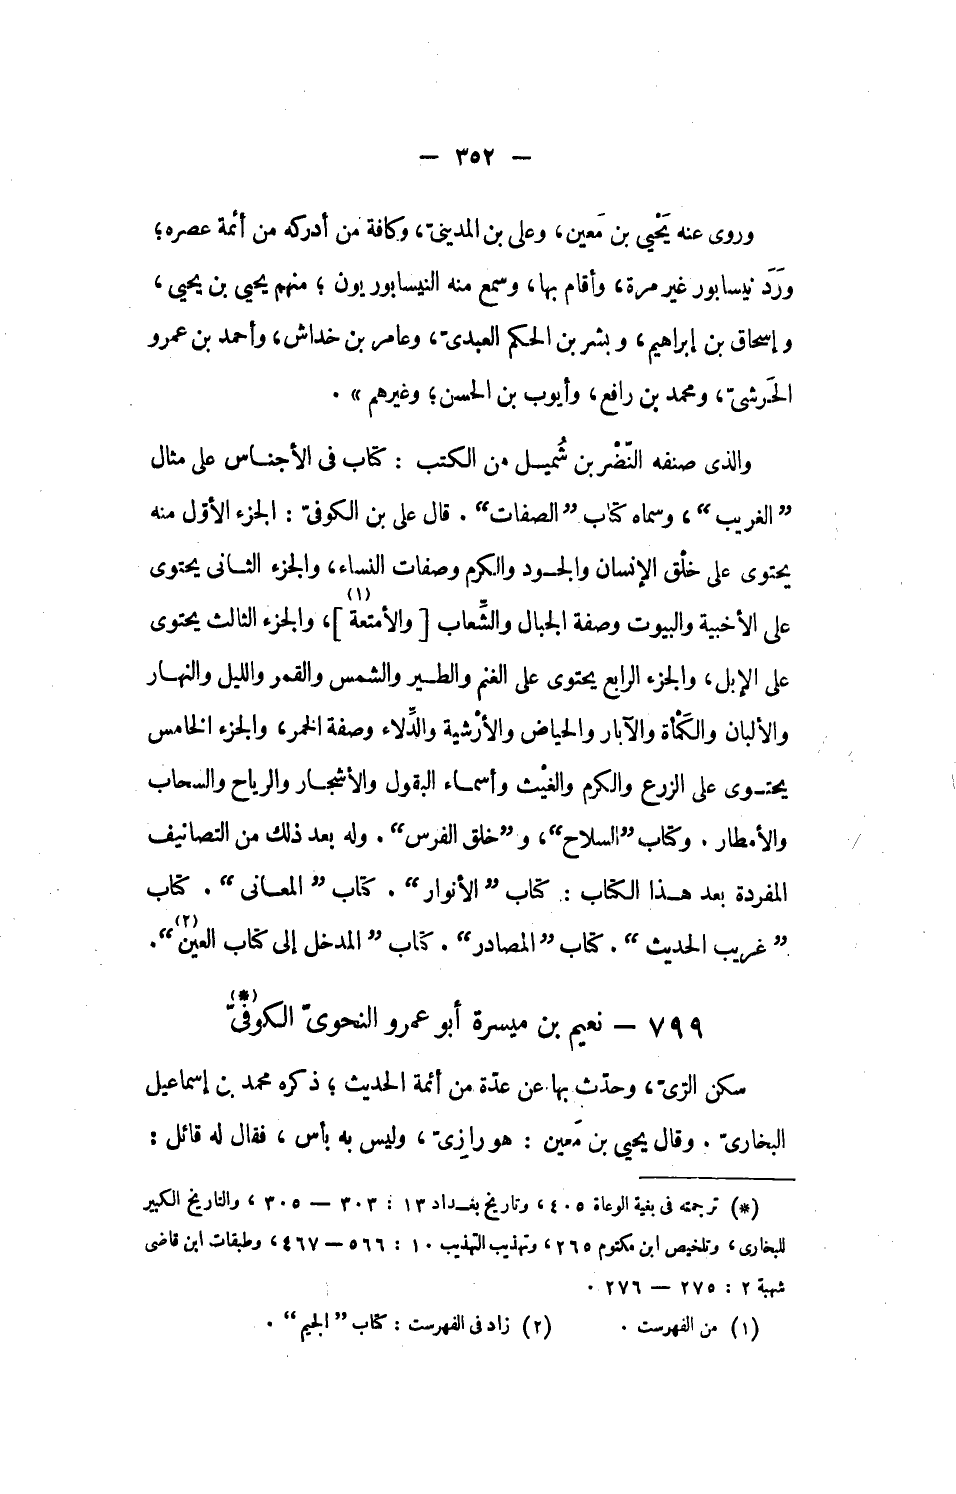 — ٣٥٢ —
وروى عنه يَحْيي بن مَعين، وعلى بن المدينىّ، وكافة من أدركه من أئمة عصره؛
ورَدَ نيسابور غير مرة، وأقام بها، وسمع منه النيسابوريون ؛ منهم يحيى بن يحيى،
وإسحاق بن إبراهيم، وبشر بن الحكم العبدىّ، وعامر بن خداش، وأحمد بن عمرو
الحَرشىّ، ومحمد بن رافع، وأيوب بن الحسن؛ وغيرهم » .
والذى صنفه النّضْر بن شُميـل من الكتب : كتاب فى الأجنـاس على مثال
” الغريب “، وسماه كتاب ” الصفات “ . قال على بن الكوفىّ : الجزء الأوّل منه
يحتوى على خلْق الإنسان والجـود والكرم وصفات النساء، والجزء الثـانى يحتوى
على الأخبية والبيوت وصفة الجبال والشِّعاب [ والأمتعة (١) ]، والجزء الثالث يحتوى
على الإبل، والجزء الرابع يحتوى على الغنم والطـير والشمس والقمر والليل والنهـار
والألبان والكَمْأة والآبار والحياض والأرْشية والدِّلاء وصفة الخمر، والجزء الخامس
يحتـوى على الزرع والكرم والغيْث وأسمـاء البقول والأشجـار والرياح والسحاب
والأمطار . وكتاب ” السلاح “، و ” خلق الفرس “ . وله بعد ذلك من التصانيف
المفردة بعد هـذا الكتاب : كتاب ” الأنوار “ . كتاب ” المعـانى “ . كتاب
” غريب الحديث “ . كتاب ” المصادر “ . كتاب ” المدخل إلى كتاب العين (٢) “ .
٧٩٩ — نعيم بن ميسرة أبو عمرو النحوىّ الكوفىّ (*)
سكن الرىّ، وحدّث بها عن عدّة من أئمة الحديث ؛ ذكره محمد بن إسماعيل
البخارىّ . وقال يحيى بن مَعين : هو رازىّ، وليس به بأس، فقال له قائل :
(*) ترجمته فى بغية الوعاة ٤٠٥، وتاريخ بغـداد ١٣ : ٣٠٣ — ٣٠٥، والتاريخ الكبير
للبخارى، وتلخيص ابن مكتوم ٢٦٥، وتهذيب التهذيب ١٠ : ٥٦٦ — ٤٦٧، وطبقات ابن قاضى
شهبة ٢ : ٢٧٥ — ٢٧٦ .
(١) من الفهرست . (٢) زاد فى الفهرست : كتاب ” الجيم “ .